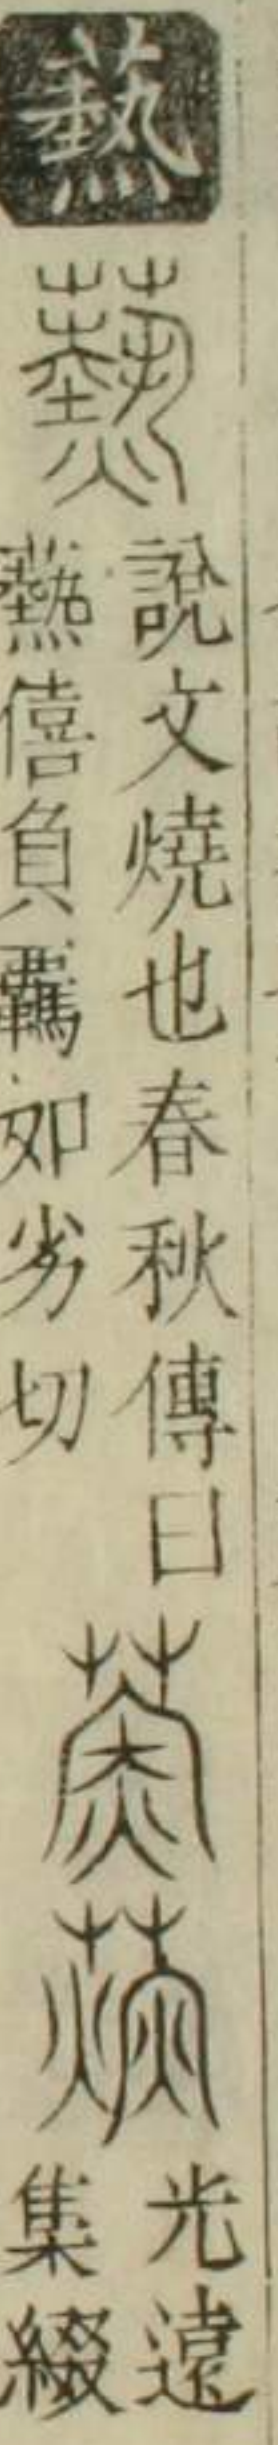 爇
說文燒也春秋傳曰
爇僖負羈如劣切
光遠
集綴